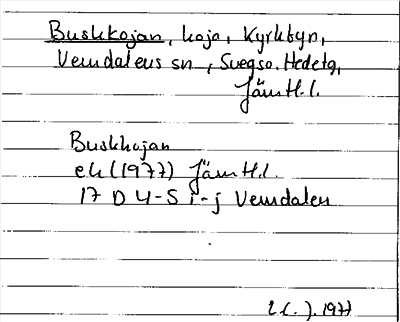 Buskkojan, koja, Kyrkbyn,
Vemdalens sn, Svegso. Hedetg,
Jämtl.l.
Buskkojan
ek (1977) Jämtl.l.
17 D 4-5 i-j Vemdalen
1977